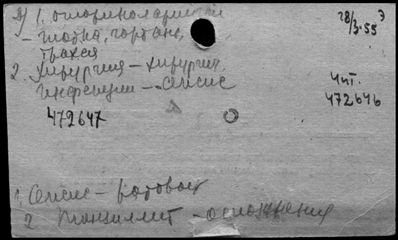 1. отоларингология
- глотка, гортань,
трахея
2. Хирургия - хирургич.
инфекции - сепсис
28/3.55 Э
Чит.
472646
472647
1. Сепсис - ротовой
2 Тонзиллит - осложнения